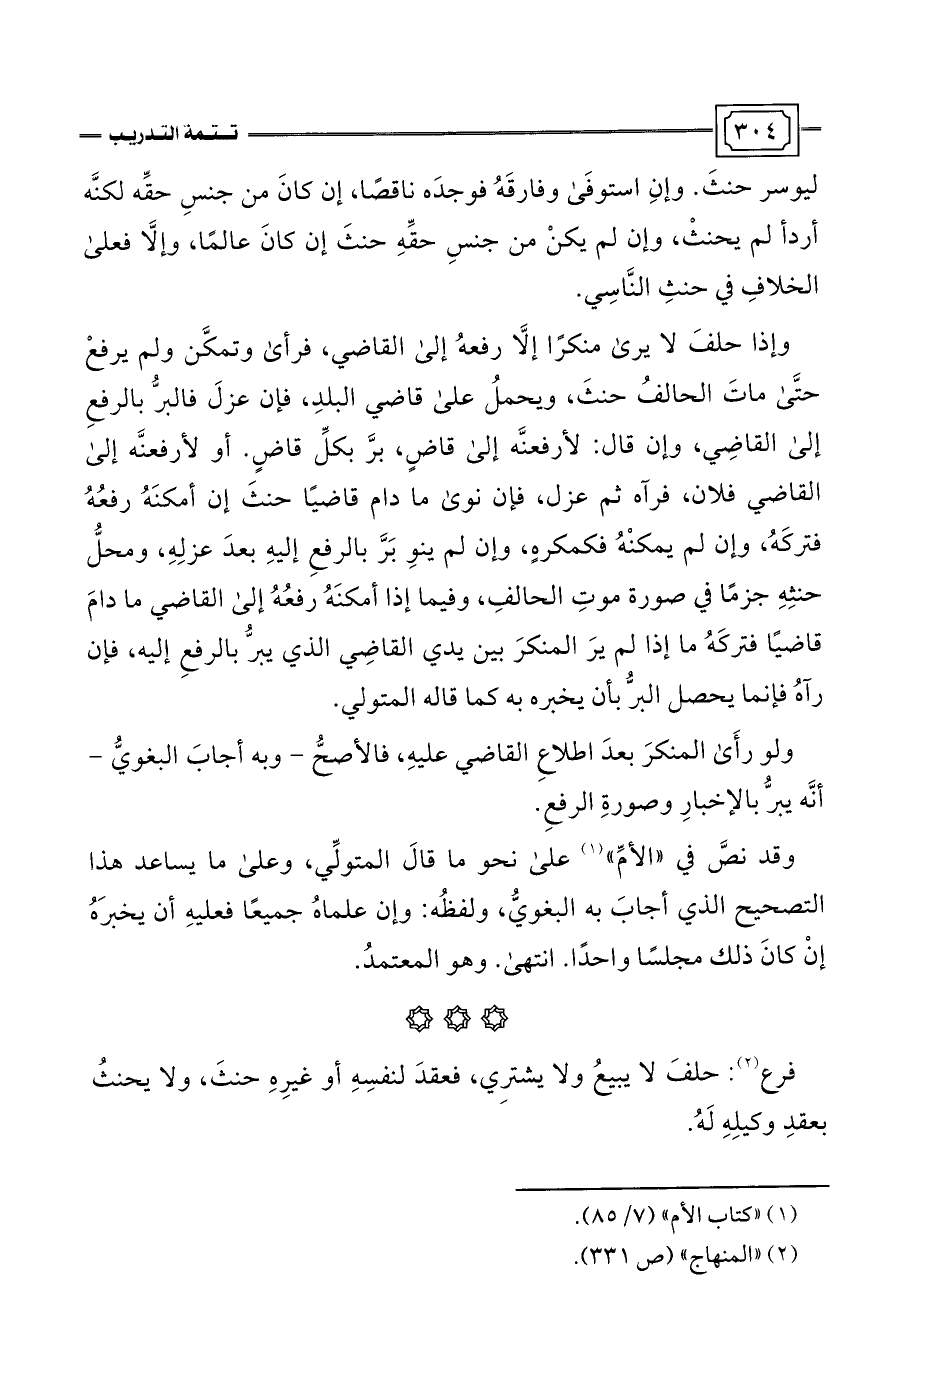 ٣٠٤ تتمة التدريب
ليوسر حنثَ. وإنِ استوفَىٰ وفارقَهُ فوجدَه ناقصًا، إن كانَ من جنسِ حقِّه لكنَّه
أردأ لم يحنثْ، وإن لم يكنْ من جنسِ حقِّهِ حنثَ إن كانَ عالمًا، وإلَّا فعلىٰ
الخلافِ في حنثِ النَّاسِي.
وإذا حلفَ لا يرىٰ منكرًا إلَّا رفعهُ إلىٰ القاضي، فرأىٰ وتمكَّن ولم يرفعْ
حتَّىٰ ماتَ الحالفُ حنثَ، ويحملُ علىٰ قاضي البلدِ، فإن عزلَ فالبرُّ بالرفعِ
إلىٰ القاضِي، وإن قال: لأرفعنَّه إلىٰ قاضٍ، برَّ بكلِّ قاضٍ. أو لأرفعنَّه إلىٰ
القاضي فلان، فرآه ثم عزل، فإن نوىٰ ما دام قاضيًا حنثَ إن أمكنَهُ رفعُهُ
فتركَهُ، وإن لم يمكنْهُ فكمكرهٍ، وإن لم ينوِ بَرَّ بالرفعِ إليهِ بعدَ عزلِهِ، ومحلُّ
حنثِهِ جزمًا في صورة موتِ الحالفِ، وفيما إذا أمكنَهُ رفعُهُ إلىٰ القاضي ما دامَ
قاضيًا فتركَهُ ما إذا لم يرَ المنكرَ بين يدي القاضِي الذي يبرُّ بالرفعِ إليه، فإن
رآهُ فإنما يحصل البرُّ بأن يخبره به كما قاله المتولي.
ولو رأَىٰ المنكرَ بعدَ اطلاعِ القاضي عليهِ، فالأصحُّ – وبه أجابَ البغويُّ –
أنَّه يبرُّ بالإخبارِ وصورةِ الرفعِ.
وقد نصَّ في «الأمِّ»(١) علىٰ نحو ما قالَ المتولِّي، وعلىٰ ما يساعد هذا
التصحيح الذي أجابَ به البغويُّ، ولفظُه: وإن علماهُ جميعًا فعليهِ أن يخبرَهُ
إنْ كانَ ذلك مجلسًا واحدًا. انتهىٰ. وهو المعتمدُ.
فرع(٢): حلفَ لا يبيعُ ولا يشترِي، فعقدَ لنفسِهِ أو غيرِهِ حنثَ، ولا يحنثُ
بعقدِ وكيلِهِ لَهُ.
(١) «كتاب الأم» (٧/ ٨٥).
(٢) «المنهاج» (ص ٣٣١).